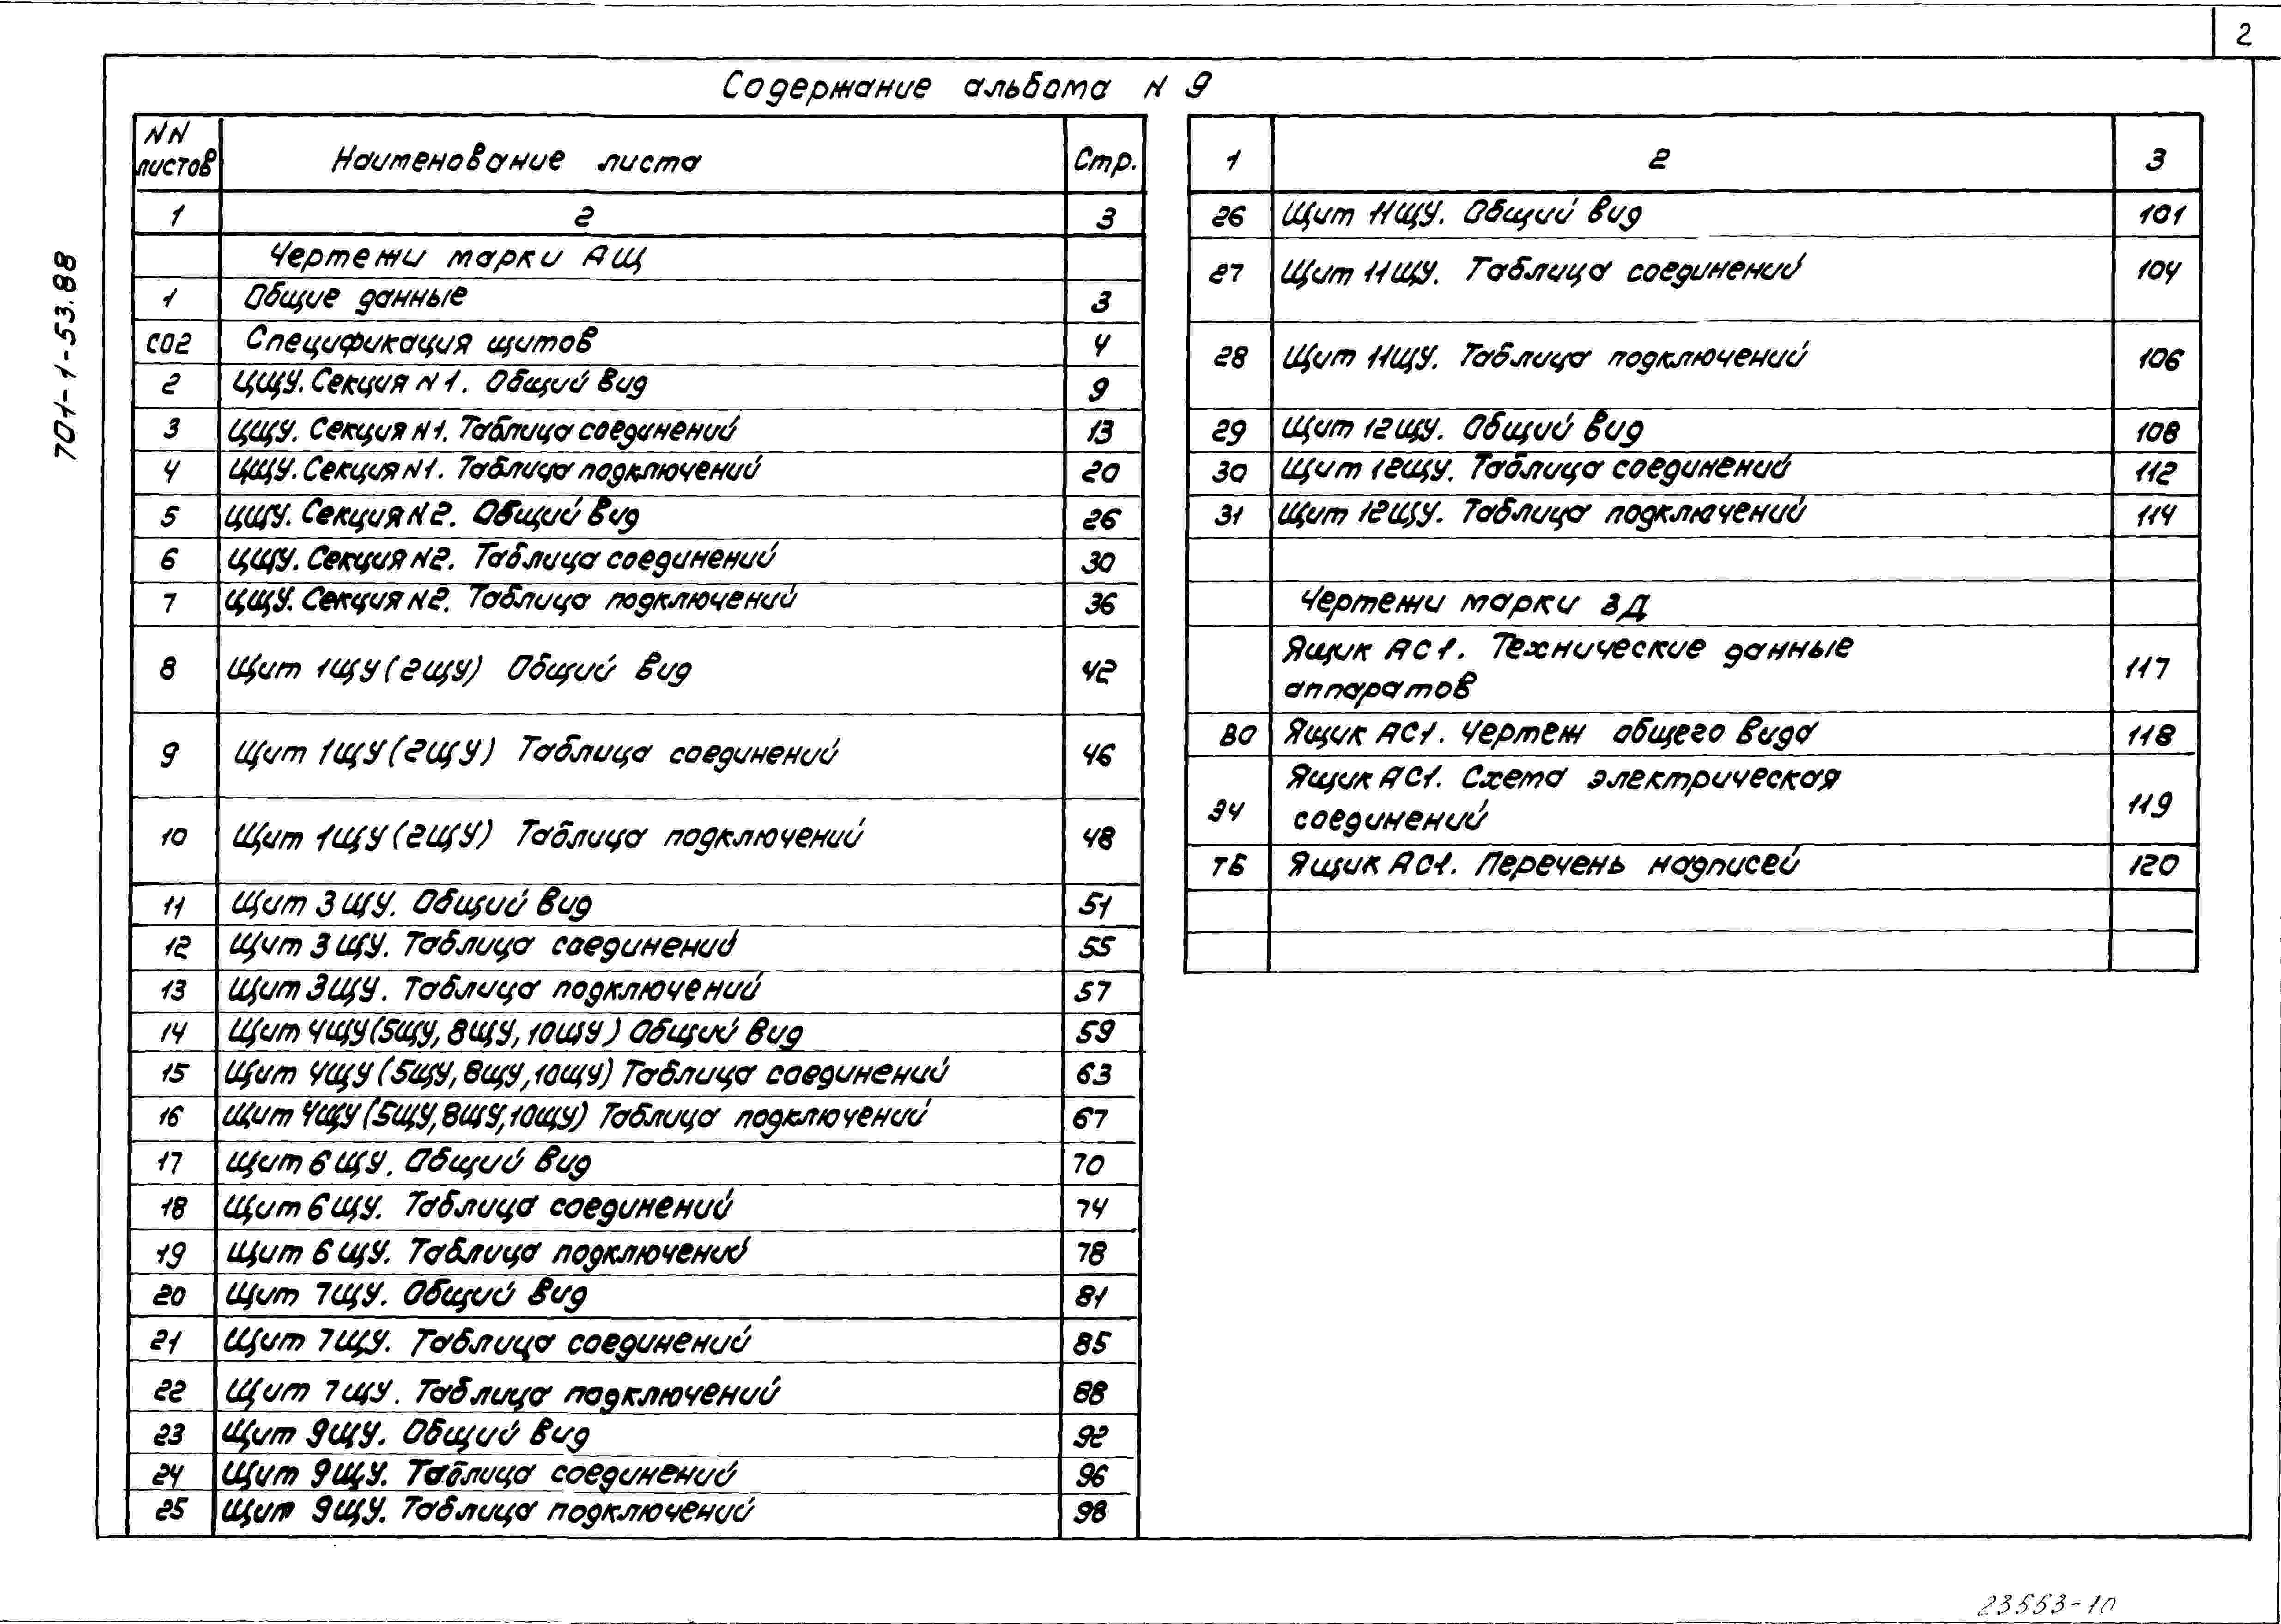 2
Содержание альбома N 9
701-1-53.88
NN листов Наименование листа Стр.
1 2 3
Чертежи марки АЩ
1 Общие данные 3
СО2 Спецификация щитов 4
2 ЦЩУ. Секция N1. Общий вид 9
3 ЦЩУ. Секция N1. Таблица соединений 13
4 ЦЩУ. Секция N1. Таблица подключений 20
5 ЦЩУ. Секция N2. Общий вид 26
6 ЦЩУ. Секция N2. Таблица соединений 30
7 ЦЩУ. Секция N2. Таблица подключений 36
8 Щит 1ЩУ (2ЩУ) Общий вид 42
9 Щит 1ЩУ (2ЩУ) Таблица соединений 46
10 Щит 1ЩУ (2ЩУ) Таблица подключений 48
11 Щит 3ЩУ. Общий вид 51
12 Щит 3ЩУ. Таблица соединений 55
13 Щит 3ЩУ. Таблица подключений 57
14 Щит 4ЩУ (5ЩУ, 8ЩУ, 10ЩУ) Общий вид 59
15 Щит 4ЩУ (5ЩУ, 8ЩУ, 10ЩУ) Таблица соединений 63
16 Щит 4ЩУ (5ЩУ, 8ЩУ, 10ЩУ) Таблица подключений 67
17 Щит 6ЩУ. Общий вид 70
18 Щит 6ЩУ. Таблица соединений 74
19 Щит 6ЩУ. Таблица подключений 78
20 Щит 7ЩУ. Общий вид 81
21 Щит 7ЩУ. Таблица соединений 85
22 Щит 7ЩУ. Таблица подключений 88
23 Щит 9ЩУ. Общий вид 92
24 Щит 9ЩУ. Таблица соединений 96
25 Щит 9ЩУ. Таблица подключений 98
1 2 3
26 Щит 11ЩУ. Общий вид 101
27 Щит 11ЩУ. Таблица соединений 104
28 Щит 11ЩУ. Таблица подключений 106
29 Щит 12ЩУ. Общий вид 108
30 Щит 12ЩУ. Таблица соединений 112
31 Щит 12ЩУ. Таблица подключений 114
Чертежи марки ЗД
Ящик АС1. Технические данные
аппаратов 117
ВО Ящик АС1. Чертеж общего вида 118
Ящик АС1. Схема электрическая
Э4 соединений 119
ТБ Ящик АС1. Перечень надписей 120
23553-10